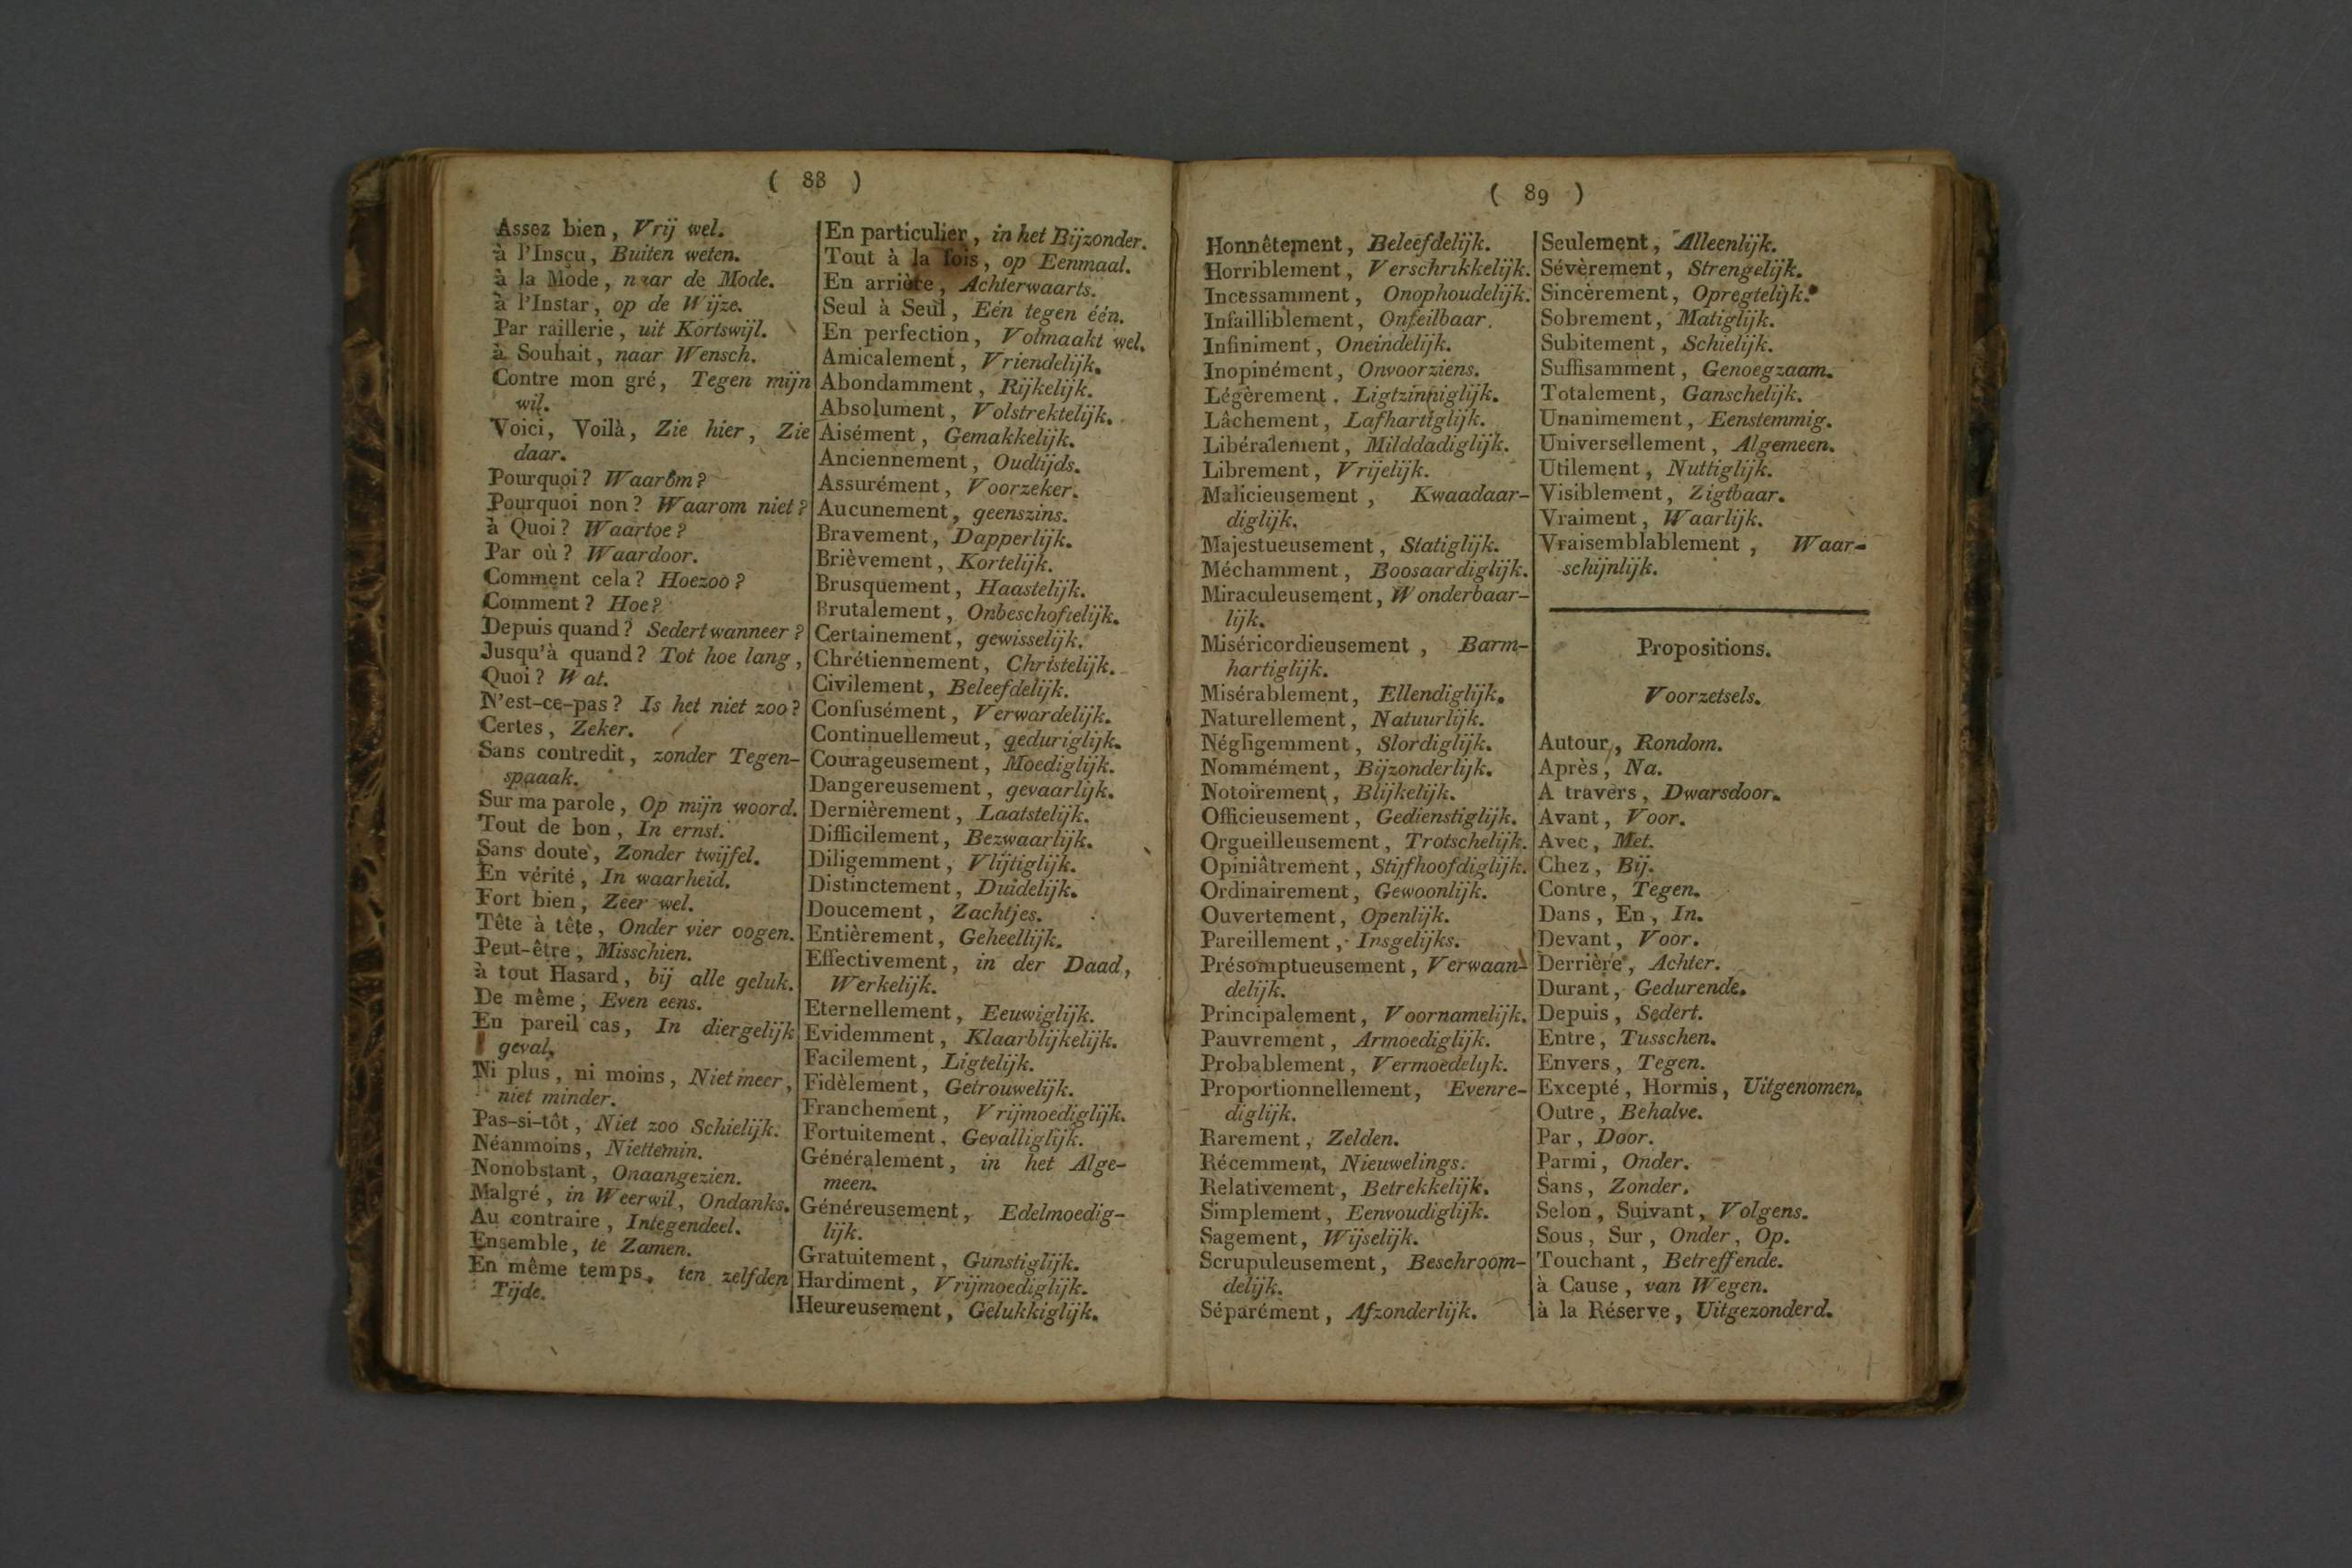 ( 88 )
Assez bien, Vrij wel.
à l'Insçu, Buiten weten.
à la Mode, naar de Mode.
à l'Instar, op de Wijze.
Par raillerie, uit Kortswijl.
à Souhait, naar Wensch.
Contre mon gré, Tegen mijn
wil.
Voici, Voilà, Zie hier, Zie
daar.
Pourquoi? Waarom?
Pourquoi non? Waarom niet?
à Quoi? Waartoe?
Par où? Waardoor.
Comment cela? Hoezoo?
Comment? Hoe?
Depuis quand? Sedert wanneer?
Jusqu'à quand? Tot hoe lang,
Quoi? Wat.
N'est-ce-pas? Is het niet zoo?
Certes, Zeker.
Sans contredit, zonder Tegen-
spaaak.
Sur ma parole, Op mijn woord.
Tout de bon, In ernst.
Sans doute, Zonder twijfel.
En vérité, In waarheid.
Fort bien, Zeer wel.
Tête à tête, Onder vier oogen.
Peut-être, Misschien.
à tout Hasard, bij alle geluk.
De même, Even eens.
En pareil cas, In diergelijk
geval.
Ni plus, ni moins, Niet meer,
niet minder.
Pas-si-tôt, Niet zoo Schielijk.
Néanmoins, Niettemin.
Nonobstant, Onaangezien.
Malgré, in Weerwil, Ondanks.
Au contraire, Integendeel.
Ensemble, te Zamen.
En même temps, ten zelfden
Tijde.
En particulier, in het Bijzonder.
Tout à la fois, op Eenmaal.
En arrière, Achterwaarts.
Seul à Seul, Eén tegen één.
En perfection, Volmaakt wel.
Amicalement, Vriendelijk.
Abondamment, Rijkelijk.
Absolument, Volstrektelijk.
Aisément, Gemakkelijk.
Anciennement, Oudtijds.
Assurément, Voorzeker.
Aucunement, geenszins.
Bravement, Dapperlijk.
Brièvement, Kortelijk.
Brusquement, Haastelijk.
Brutalement, Onbeschoftelijk.
Certainement, gewisselijk.
Chrétiennement, Christelijk.
Civilement, Beleefdelijk.
Confusément, Verwardelijk.
Continuellemeut, geduriglijk.
Courageusement, Moediglijk.
Dangereusement, gevaarlijk.
Dernièrement, Laatstelijk.
Difficilement, Bezwaarlijk.
Diligemment, Vlijtiglijk.
Distinctement, Duidelijk.
Doucement, Zachtjes.
Entièrement, Geheellijk.
Effectivement, in der Daad,
Werkelijk.
Eternellement, Eeuwiglijk.
Evidemment, Klaarblijkelijk.
Facilement, Ligtelijk.
Fidèlement, Getrouwelijk.
Franchement, Vrijmoediglijk.
Fortuitement, Gevalliglijk.
Généralement, in het Alge-
meen.
Généreusement, Edelmoedig-
lijk.
Gratuitement, Gunstiglijk.
Hardiment, Vrijmoediglijk.
Heureusement, Gelukkiglijk.
( 89 )
Honnêtement, Beleefdelijk.
Horriblement, Verschrikkelijk.
Incessamment, Onophoudelijk.
Infailliblement, Onfeilbaar.
Infiniment, Oneindelijk.
Inopinément, Onvoorziens.
Légèrement. Ligtzinniglijk.
Lâchement, Lafhartiglijk.
Libéralement, Milddadiglijk.
Librement, Vrijelijk.
Malicieusement, Kwaadaar-
diglijk.
Majestueusement, Statiglijk.
Méchamment, Boosaardiglijk.
Miraculeusement, Wonderbaar-
lijk.
Miséricordieusement, Barm-
hartiglijk.
Misérablement, Ellendiglijk.
Naturellement, Natuurlijk.
Négligemment, Slordiglijk.
Nommément, Bijzonderlijk.
Notoirement, Blijkelijk.
Officieusement, Gedienstiglijk.
Orgueilleusement, Trotschelijk.
Opiniâtrement, Stijfhoofdiglijk.
Ordinairement, Gewoonlijk.
Ouvertement, Openlijk.
Pareillement, Insgelijks.
Présomptueusement, Verwaan-
delijk.
Principalement, Voornamelijk.
Pauvrement, Armoediglijk.
Probablement, Vermoedelijk.
Proportionnellement, Evenre-
diglijk.
Rarement, Zelden.
Récemment, Nieuwelings.
Relativement, Betrekkelijk.
Simplement, Eenvoudiglijk.
Sagement, Wijselijk.
Scrupuleusement, Beschroom-
delijk.
Séparément, Afzonderlijk.
Seulement, Alleenlijk.
Sévèrement, Strengelijk.
Sincèrement, Opregtelijk.
Sobrement, Matiglijk.
Subitement, Schielijk.
Suffisamment, Genoegzaam.
Totalement, Ganschelijk.
Unanimement, Eenstemmig.
Universellement, Algemeen.
Utilement, Nuttiglijk.
Visiblement, Zigtbaar.
Vraiment, Waarlijk.
Vraisemblablement, Waar-
schijnlijk.
Propositions.
Voorzetsels.
Autour, Rondom.
Après, Na.
A travers, Dwarsdoor.
Avant, Voor.
Avec, Met.
Chez, Bij.
Contre, Tegen.
Dans, En, In.
Devant, Voor.
Derrière, Achter.
Durant, Gedurende.
Depuis, Sedert.
Entre, Tusschen.
Envers, Tegen.
Excepté, Hormis, Uitgenomen.
Outre, Behalve.
Par, Door.
Parmi, Onder.
Sans, Zonder.
Selon, Suivant, Volgens.
Sous, Sur, Onder, Op.
Touchant, Betreffende.
à Cause, van Wegen.
à la Réserve, Uitgezonderd.